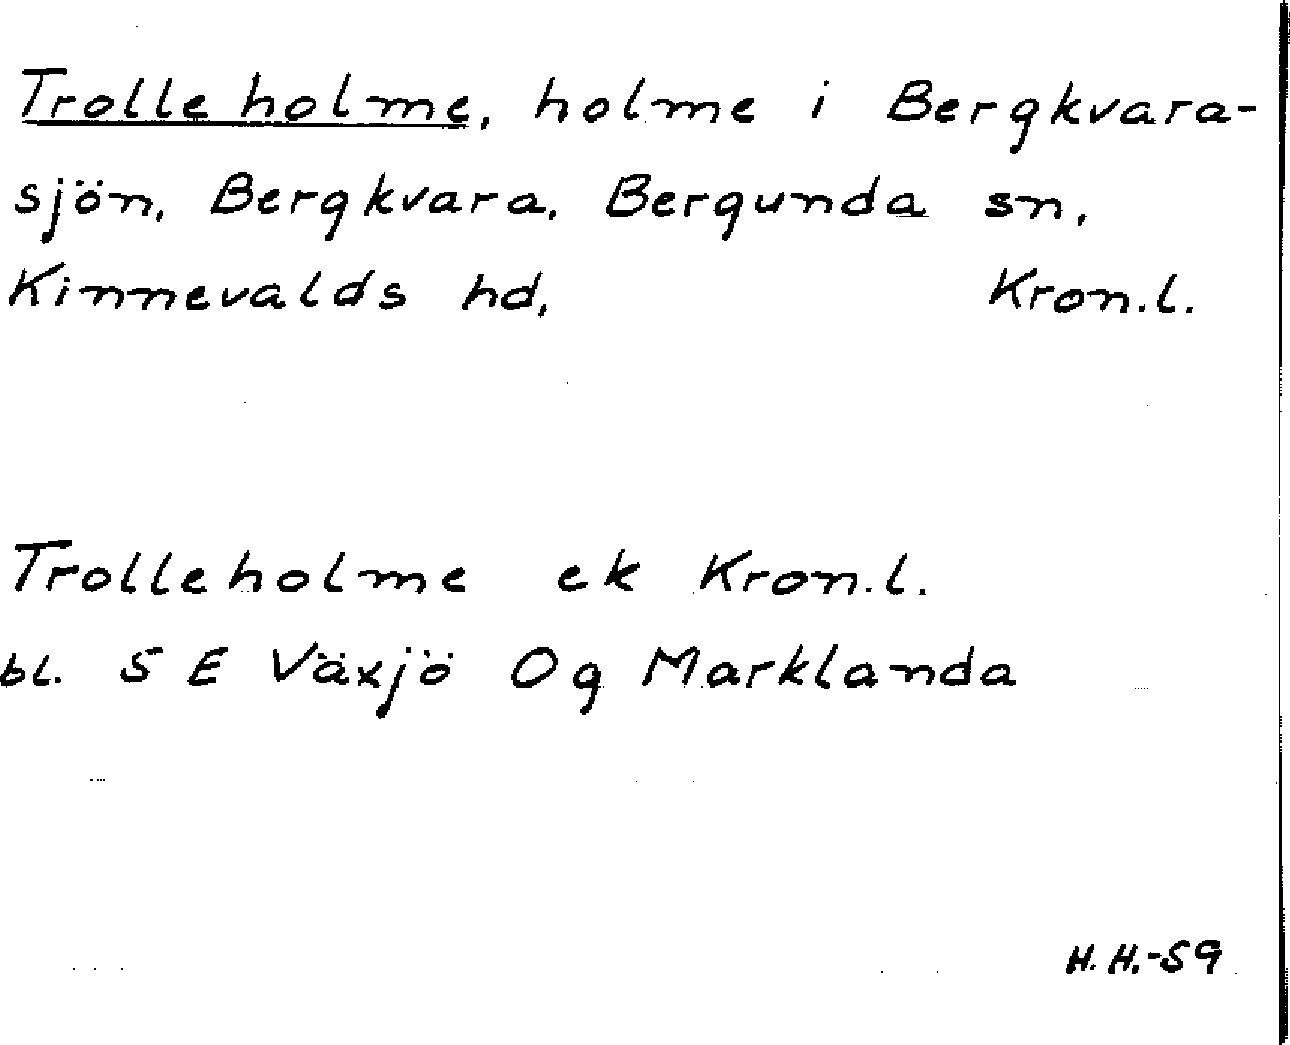 Trolleholme, holme i Bergkvara-
sjön, Bergkvara, Bergunda sn,
Kinnevalds hd, Kron.l.
Trolleholme ek Kron.l.
bl. S E Växjö Og Marklanda
H.H.-59